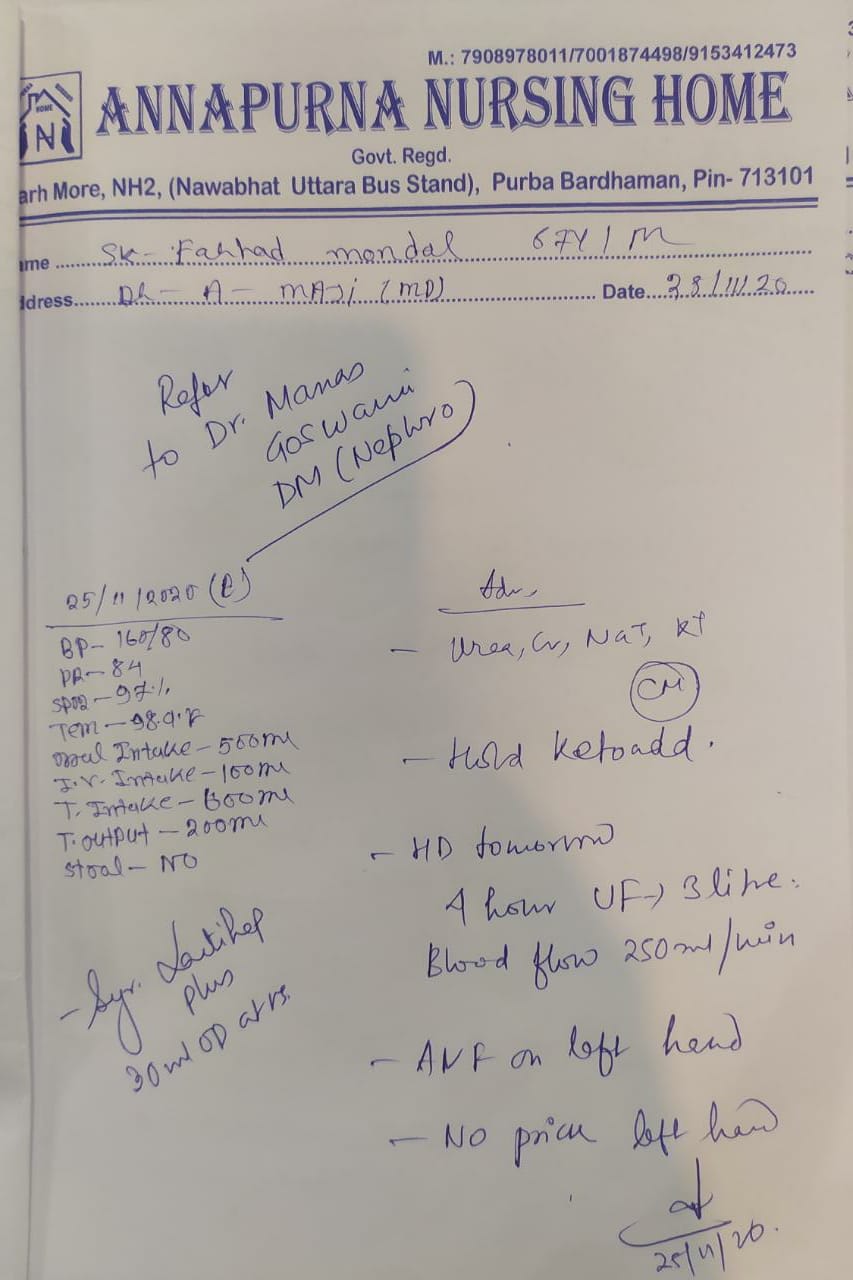 M.: 7908978011/7001874498/9153412473
HOME
N
ANNAPURNA NURSING HOME
Govt. Regd.
arh More, NH2, (Nawabhat Uttara Bus Stand), Purba Bardhaman, Pin- 713101
ame SK- Fahhad mondal 67Y/M
ddress Dr- A- MAJi (MD) Date 28/11/20
Refer
to Dr. Manas
Goswami
DM (Nephro)
25/11/2020 (E)
BP- 160/80
PR- 84
SPO2 - 97%
Tem - 98.9°F
Oral Intake - 500ml
I.V. Intake - 100ml
T. Intake - 600ml
T. output - 200ml
Stool - NO
- Syr. Lactihep
plus
30 ml OD at
Adv.
- Urea, Cr, Na+, K+
CM
- Hold ketoadd.
- HD tomorrow
4 hour UF → 3 litre.
Blood flow 250 ml/min
- AVF on left hand
- NO prick left hand
25/11/20.